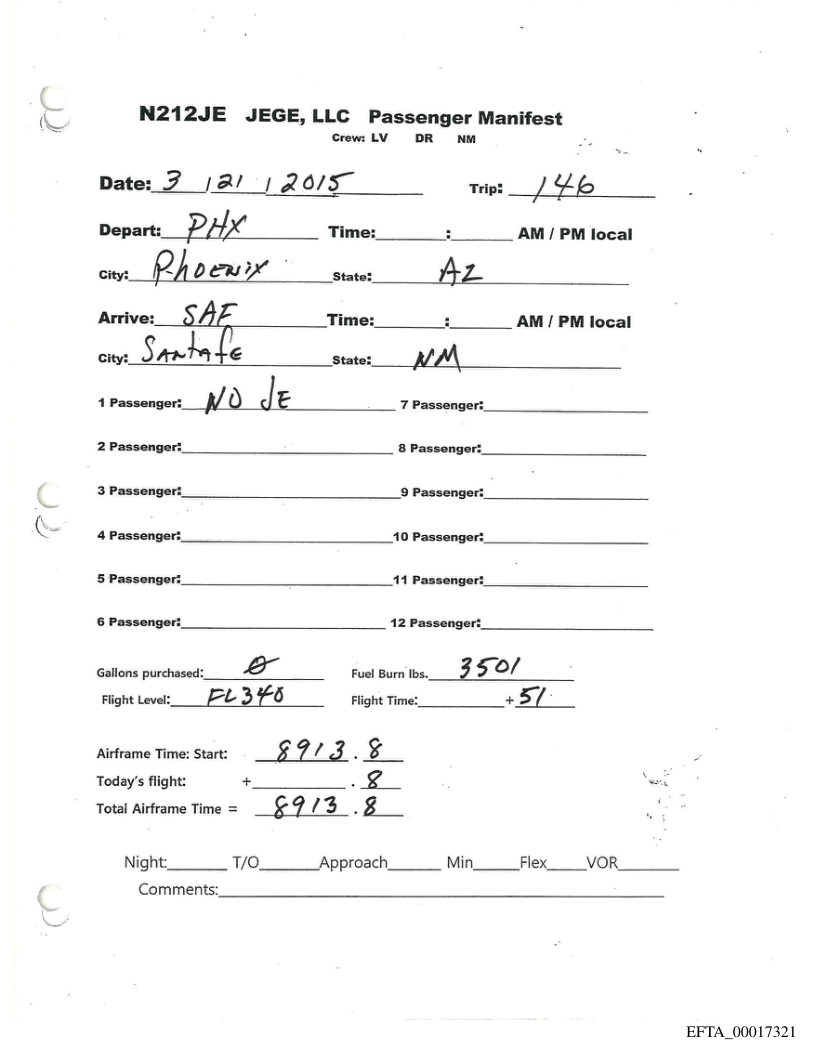 N212JE JEGE, LLC Passenger Manifest
Crew: LV DR NM
Date: 3 / 21 / 2015 Trip: 146
Depart: PHX Time:______:______ AM / PM local
City: Phoenix State: AZ
Arrive: SAF Time:______:______ AM / PM local
City: Santa fe State: NM
1 Passenger: NO JE 7 Passenger:
2 Passenger: 8 Passenger:
3 Passenger: 9 Passenger:
4 Passenger: 10 Passenger:
5 Passenger: 11 Passenger:
6 Passenger: 12 Passenger:
Gallons purchased: 0 Fuel Burn lbs. 3501
Flight Level: FL340 Flight Time: + 51
Airframe Time: Start: 8913.8
Today's flight: + .8
Total Airframe Time = 8913.8
Night:______ T/O______Approach______ Min_____Flex____VOR______
Comments:
EFTA_00017321